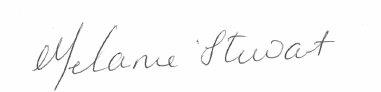 Melanie Stewart